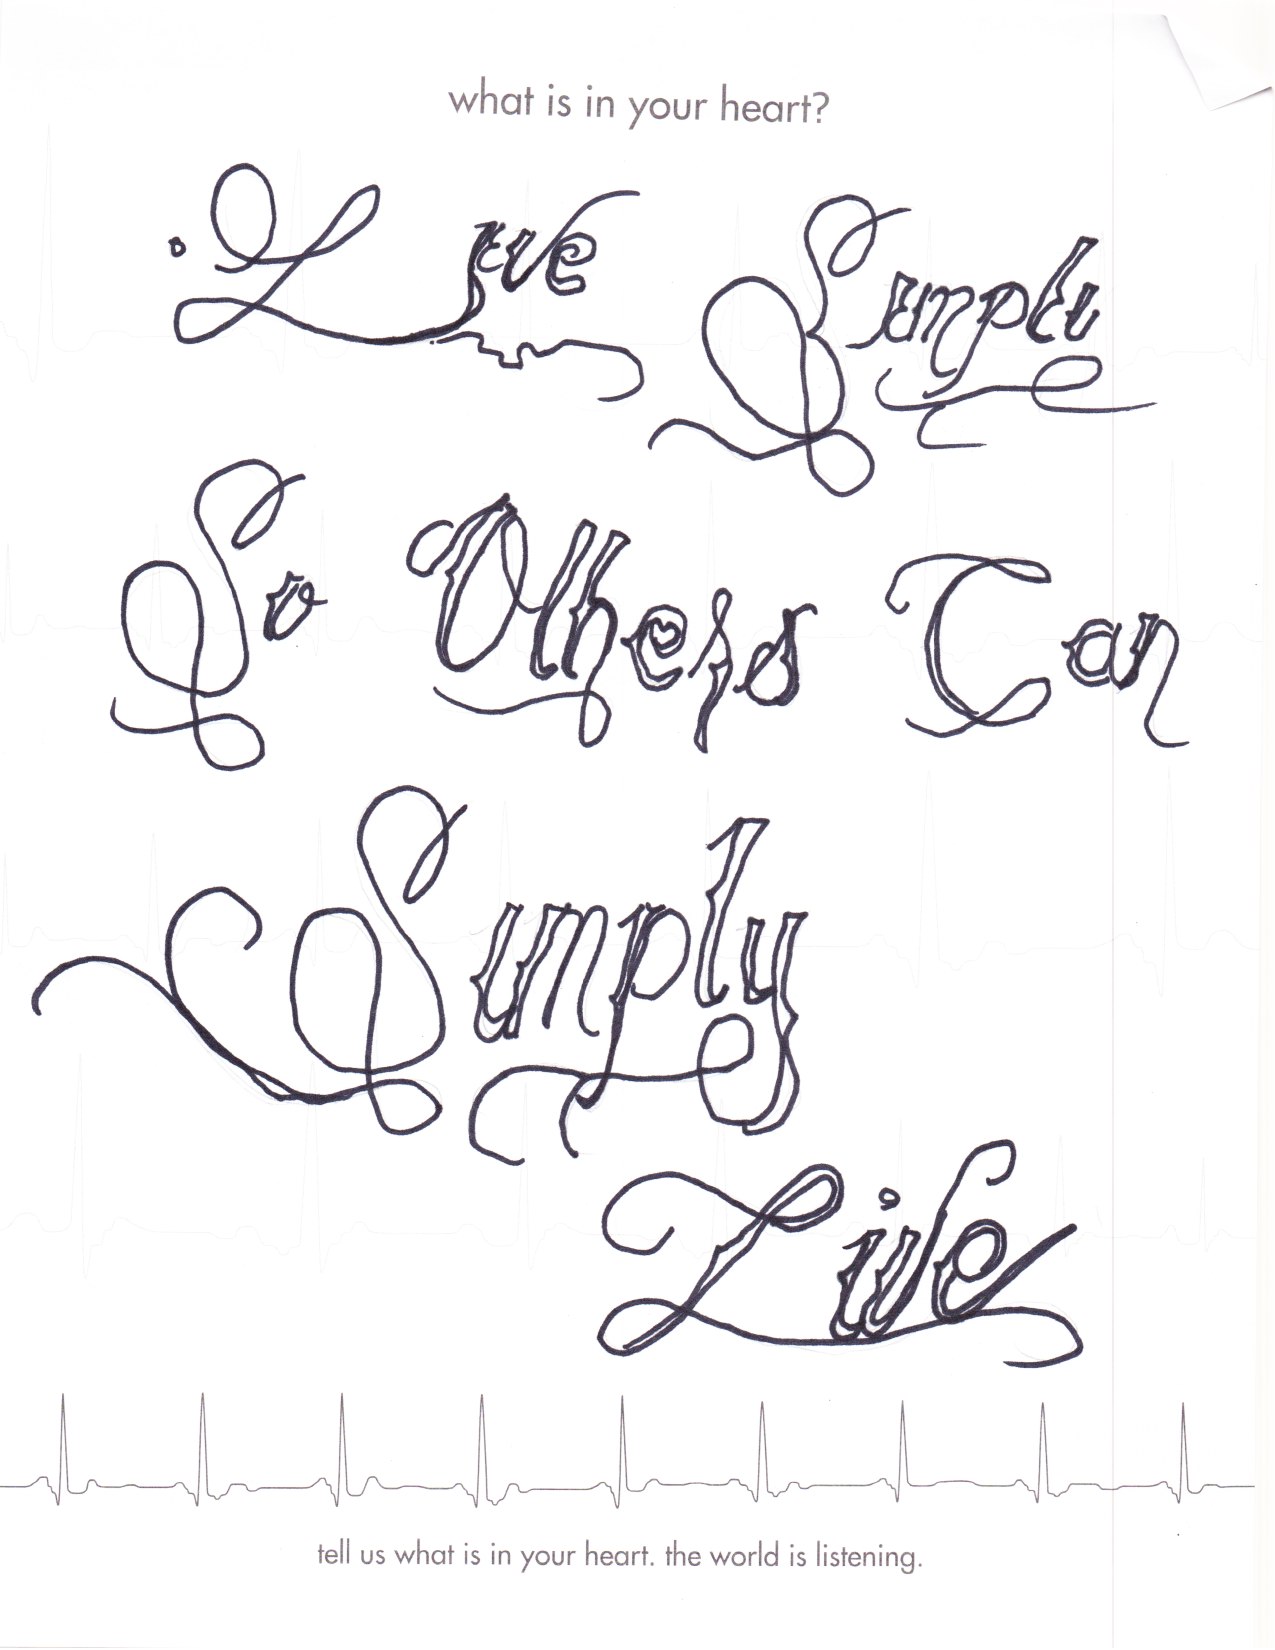 what is in your heart?
Live Simply
So Others Can
Simply
Live
tell us what is in your heart. the world is listening.